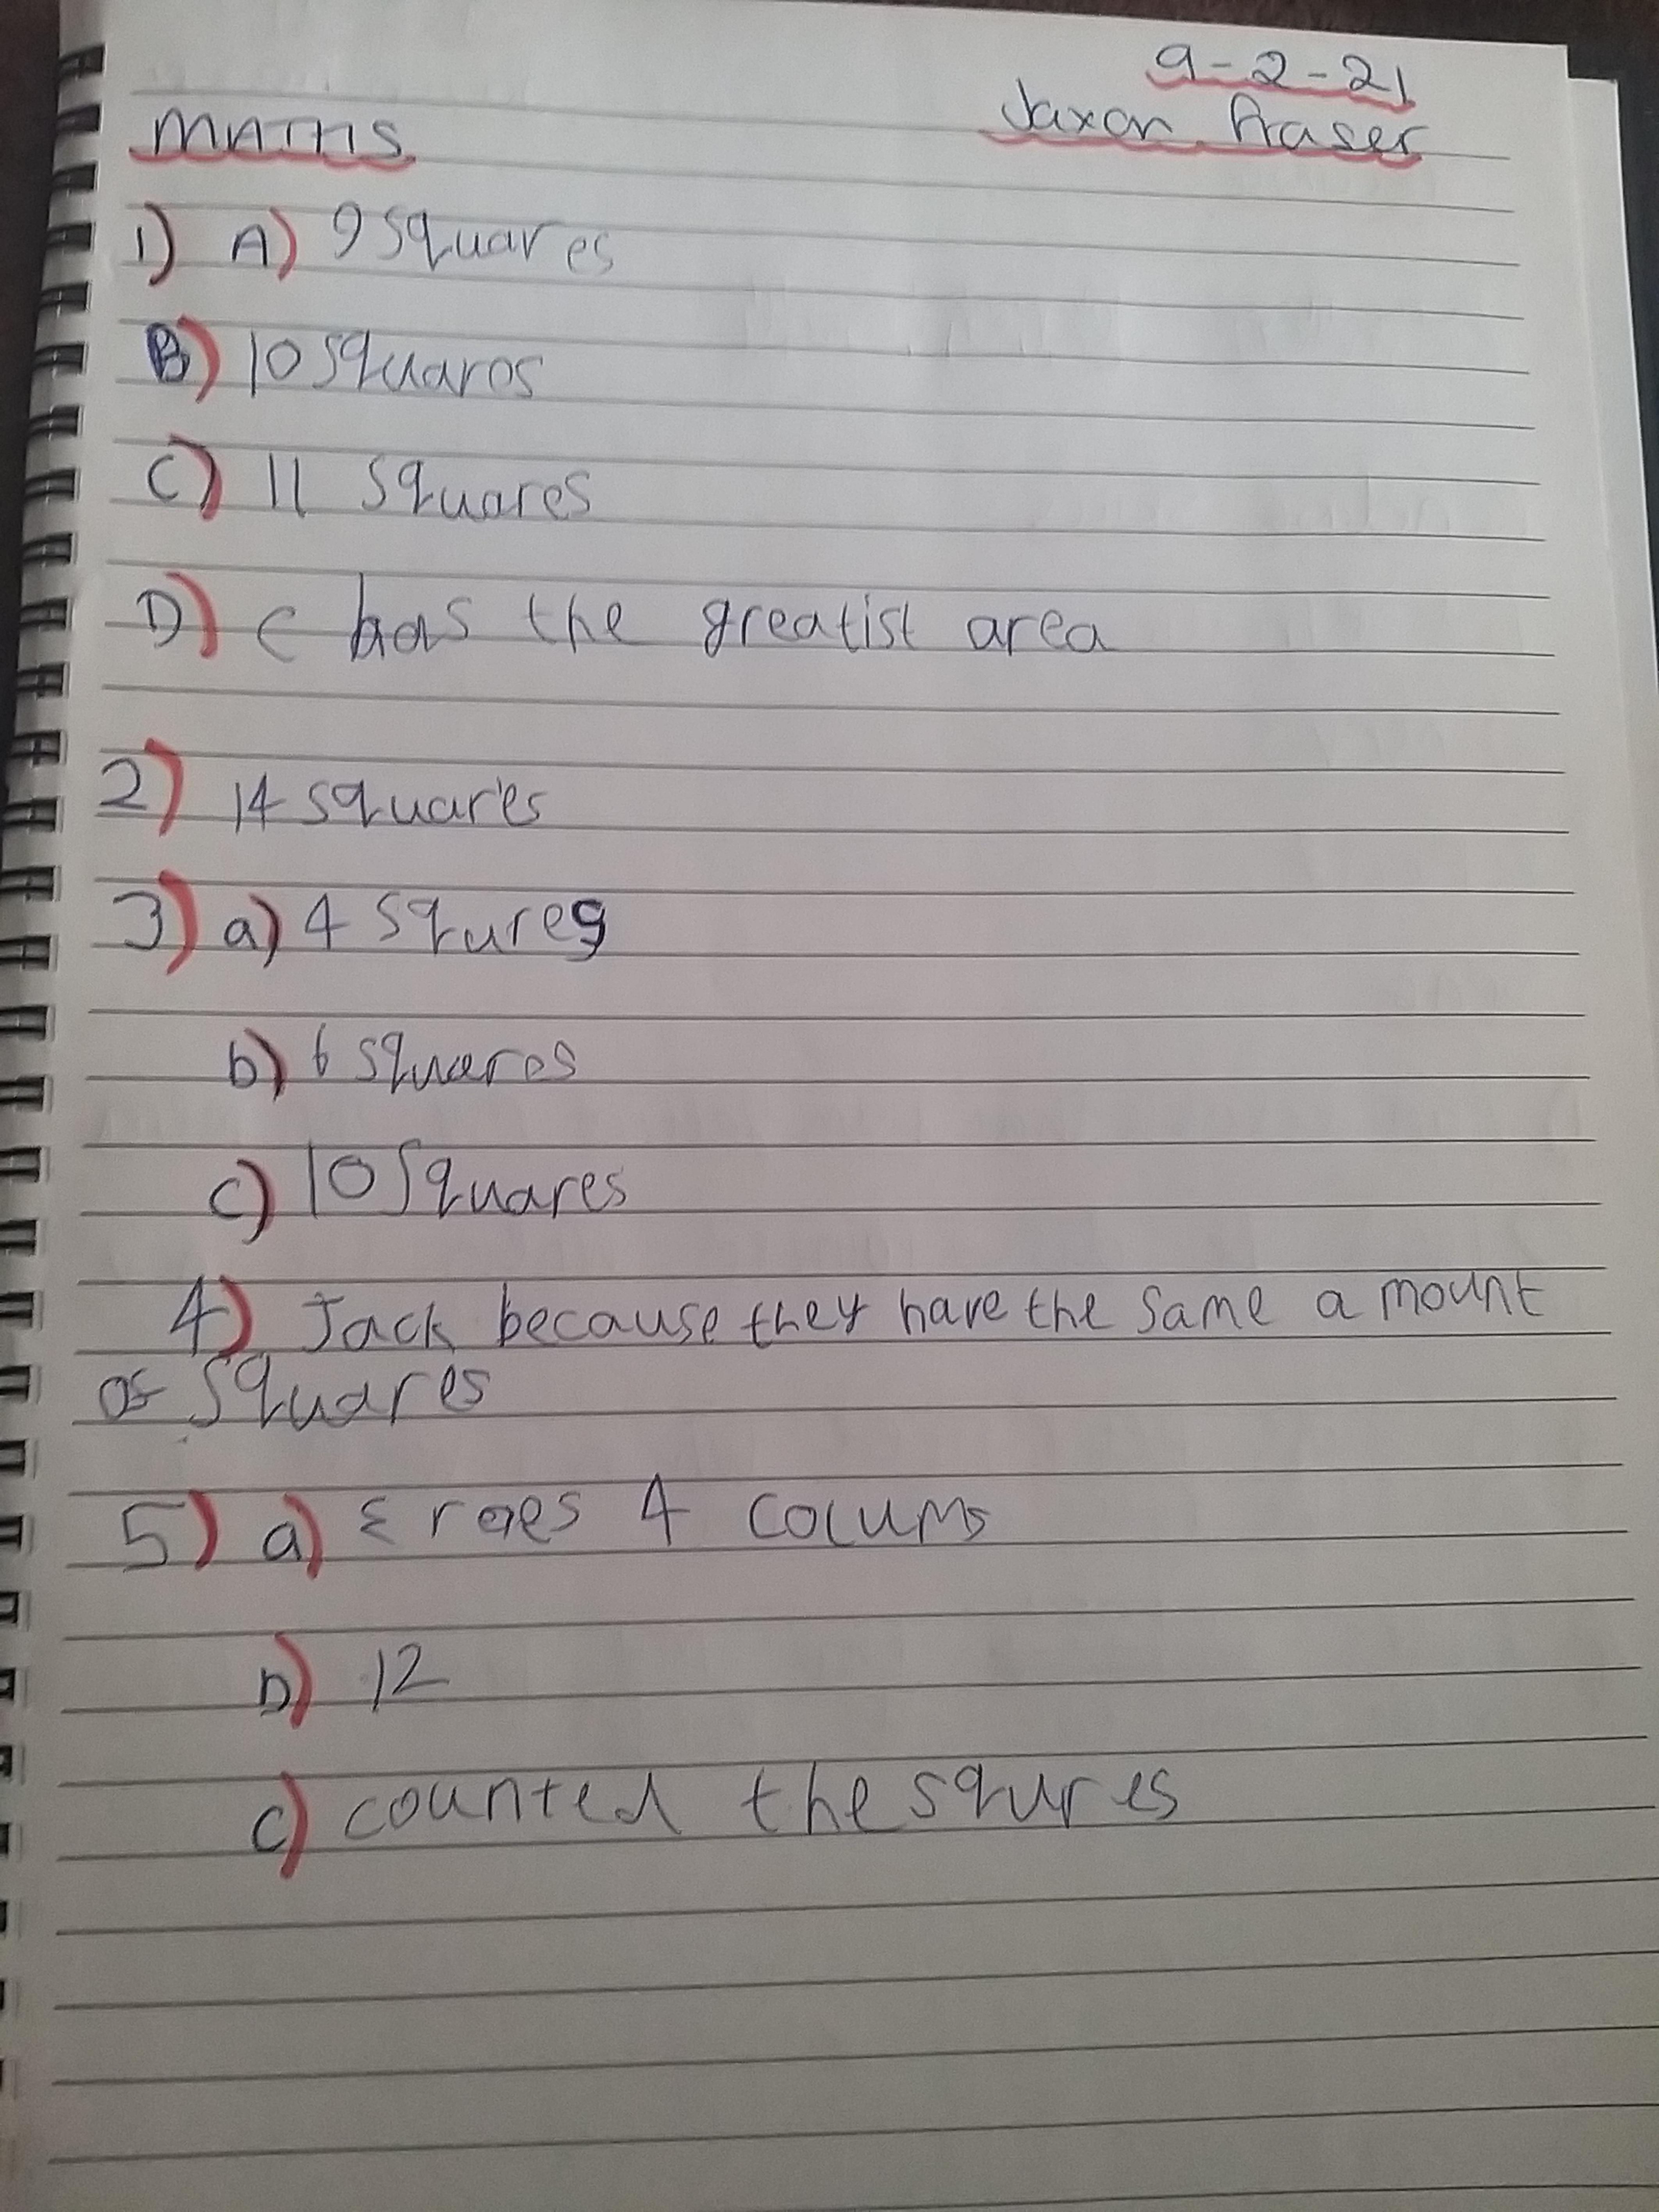 9-2-21
MATHS Jaxon Fraser
1) A) 9 squares
B) 10 squares
C) 11 squares
D) c has the greatist area
2) 14 squares
3) a) 4 squres
b) 6 squares
c) 10 squares
4) Jack because they have the same a mount
of squares
5) a) 3 roes 4 colums
b) 12
c) counted the squres